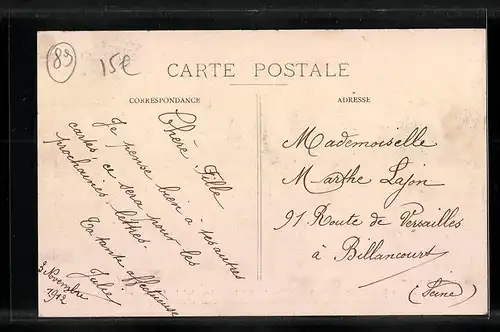 89
15€
CARTE POSTALE
CORRESPONDANCE
Chère Fille
Je pense bien à tes autres
cartes ce sera pour les
prochaines lettres.
Ta tante affectueuse
Julie
3 Novembre
1912
ADRESSE
Mademoiselle
Marthe Lajon
91 Route de Versailles
à Billancourt
(Seine)